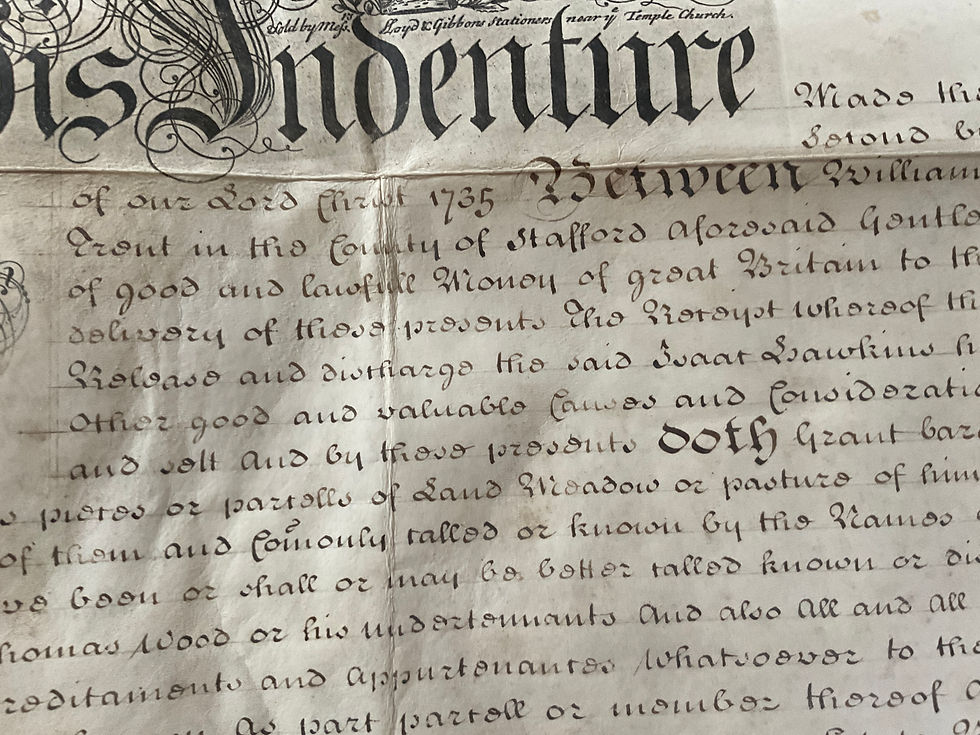 Sold by Mess.rs Lloyd & Gibbons Stationers near ye Temple Church.
his Indenture Made thi
Second
of our Lord Christ 1735 Between William
Trent in the County of Stafford Aforesaid Gentle
of good and lawfull Money of great Britain to th
delivery of these presents The Receipt whereof th
Release and discharge the said Isaac Hawkins h
Other good and valuable Causes and Consideratio
and sell And by these presents doth Grant barg
s pieces or parcells of Land Meadow or pasture of him
of them and Comonly called or known by the Names
ve been or shall or may be better called known or dis
homas Wood or his undertennants And also All and All
reditaments and Appurtenances Whatsoever to the
As part parcell or member thereof